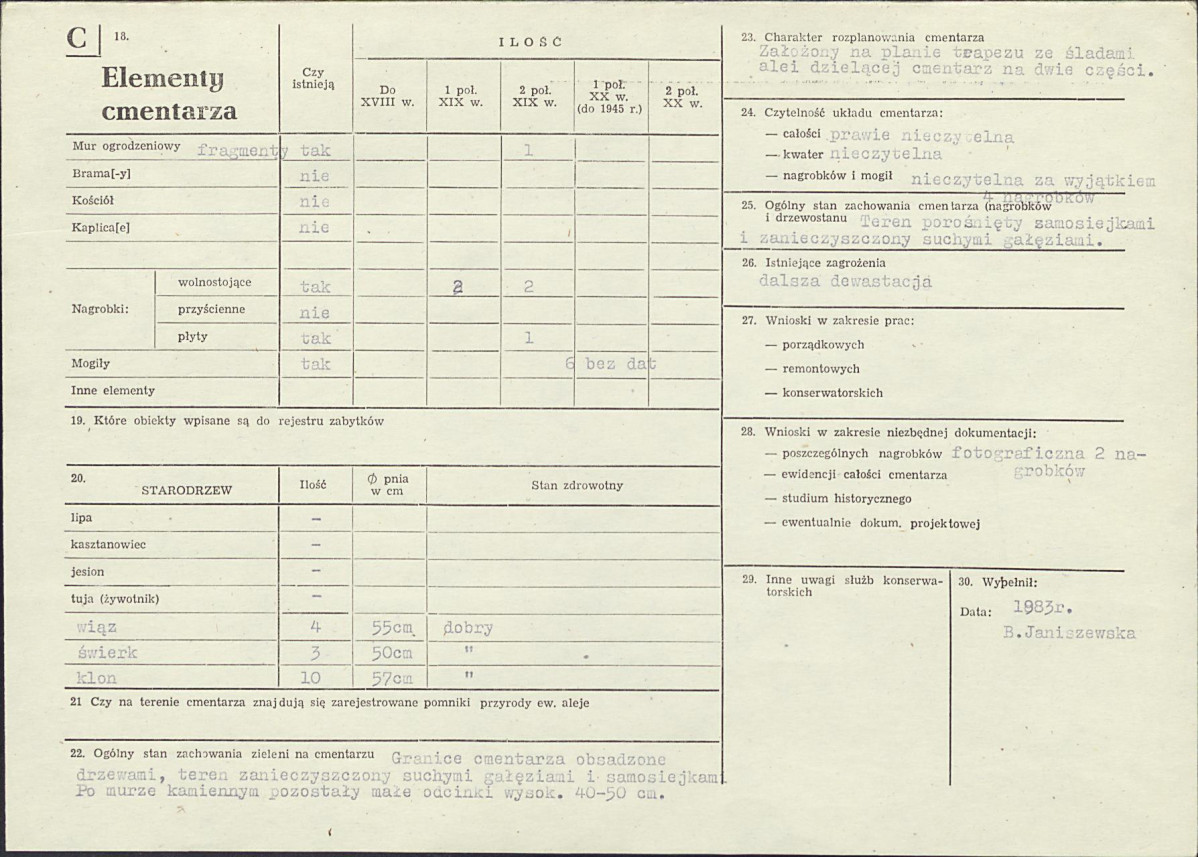 C 18.
Elementy cmentarza
Czy istnieją
ILOŚĆ
Do XVIII w.
1 poł. XIX w.
2 poł. XIX w.
1 poł. XX w. (do 1945 r.)
2 poł. XX w.
Mur ogrodzeniowy fragmenty tak 1
Brama[-y] nie
Kościół nie
Kaplica[e] nie
Nagrobki:
wolnostojące tak 2 2
przyścienne nie
płyty tak 1
Mogiły tak 6 bez dat
Inne elementy
19. Które obiekty wpisane są do rejestru zabytków
20. STARODRZEW
Ilość
Ø pnia w cm
Stan zdrowotny
lipa —
kasztanowiec —
jesion —
tuja (żywotnik) —
wiąz 4 55cm. dobry
świerk 3 50cm "
klon 10 57cm "
21 Czy na terenie cmentarza znajdują się zarejestrowane pomniki przyrody ew. aleje
22. Ogólny stan zachowania zieleni na cmentarzu Granice cmentarza obsadzone
drzewami, teren zanieczyszczony suchymi gałęziami i samosiejkami
Po murze kamiennym pozostały małe odcinki wysok. 40-50 cm.
23. Charakter rozplanowania cmentarza
Założony na planie trapezu ze śladami
alei dzielącej cmentarz na dwie części.
24. Czytelność układu cmentarza:
— całości prawie nieczytelna
— kwater nieczytelna
— nagrobków i mogił nieczytelna za wyjątkiem
4 nagrobków
25. Ogólny stan zachowania cmentarza (nagrobków
i drzewostanu Teren porośnięty samosiejkami
i zanieczyszczony suchymi gałęziami.
26. Istniejące zagrożenia
dalsza dewastacja
27. Wnioski w zakresie prac:
— porządkowych
— remontowych
— konserwatorskich
28. Wnioski w zakresie niezbędnej dokumentacji:
— poszczególnych nagrobków fotograficzna 2 na-
— ewidencji całości cmentarza grobków
— studium historycznego
— ewentualnie dokum. projektowej
29. Inne uwagi służb konserwa-
torskich
30. Wypełnił:
Data: 1983r.
B.Janiszewska